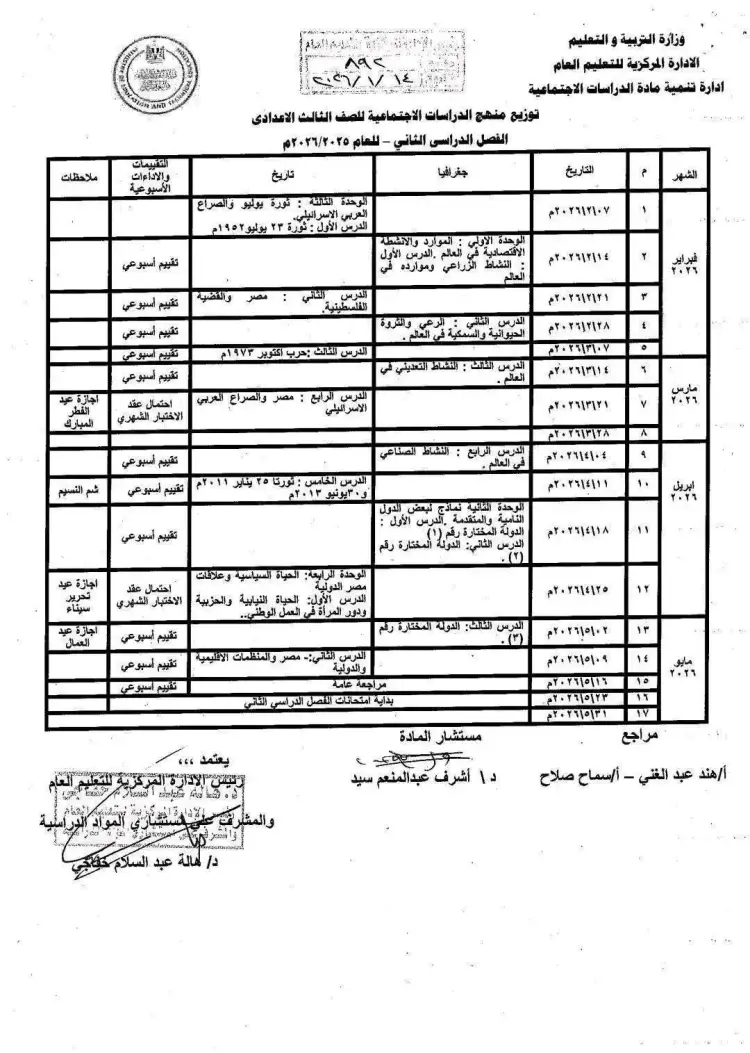 وزارة التربية و التعليم
الادارة المركزية للتعليم العام
ادارة تنمية مادة الدراسات الاجتماعية
٨٩٢
٢٠٢٦/١/١٤
توزيع منهج الدراسات الاجتماعية للصف الثالث الاعدادى
الفصل الدراسى الثاني – للعام ٢٠٢٦/٢٠٢٥م
الشهر م التاريخ جغرافيا تاريخ التقييمات والاداءات الأسبوعية ملاحظات
فبراير ٢٠٢٦
١ ٢٠٢٦/٢/٠٧م الوحدة الثالثة : ثورة يوليو والصراع العربي الاسرائيلي. الدرس الأول : ثورة ٢٣ يوليو١٩٥٢م
٢ ٢٠٢٦/٢/١٤م الوحدة الاولي : الموارد والانشطة الاقتصادية في العالم .الدرس الأول : النشاط الزراعي وموارده في العالم تقييم أسبوعي
٣ ٢٠٢٦/٢/٢١م الدرس الثاني : مصر والقضية الفلسطينية. تقييم أسبوعي
٤ ٢٠٢٦/٢/٢٨م الدرس الثاني : الرعي والثروة الحيوانية والسمكية في العالم . تقييم أسبوعي
٥ ٢٠٢٦/٣/٠٧م الدرس الثالث :حرب اكتوبر ١٩٧٣م تقييم أسبوعي
مارس ٢٠٢٦
٦ ٢٠٢٦/٣/١٤م الدرس الثالث : النشاط التعديني في العالم . تقييم أسبوعي
٧ ٢٠٢٦/٣/٢١م الدرس الرابع : مصر والصراع العربي الاسرائيلي احتمال عقد الاختبار الشهري اجازة عيد الفطر المبارك
٨ ٢٠٢٦/٣/٢٨م
ابريل ٢٠٢٦
٩ ٢٠٢٦/٤/٠٤م الدرس الرابع : النشاط الصناعي في العالم . تقييم أسبوعي
١٠ ٢٠٢٦/٤/١١م الدرس الخامس : ثورتا ٢٥ يناير ٢٠١١م و٣٠يونيو ٢٠١٣م تقييم أسبوعي شم النسيم
١١ ٢٠٢٦/٤/١٨م الوحدة الثانية نماذج لبعض الدول النامية والمتقدمة .الدرس الأول : الدولة المختارة رقم (١) الدرس الثاني: الدولة المختارة رقم (٢) . تقييم أسبوعي
١٢ ٢٠٢٦/٤/٢٥م الوحدة الرابعة: الحياة السياسية وعلاقات مصر الدولية الدرس الأول: الحياة النيابية والحزبية ودور المرأة في العمل الوطني.. احتمال عقد الاختبار الشهري اجازة عيد تحرير سيناء
مايو ٢٠٢٦
١٣ ٢٠٢٦/٥/٠٢م الدرس الثالث: الدولة المختارة رقم (٣) . تقييم أسبوعي اجازة عيد العمال
١٤ ٢٠٢٦/٥/٠٩م الدرس الثاني:- مصر والمنظمات الاقليمية والدولية تقييم أسبوعي
١٥ ٢٠٢٦/٥/١٦م مراجعة عامة تقييم أسبوعي
١٦ ٢٠٢٦/٥/٢٣م بداية امتحانات الفصل الدراسي الثاني
١٧ ٢٠٢٦/٥/٣١م
مراجع
أ/هند عبد الغني – أ/سماح صلاح
مستشار المادة
د ١ أشرف عبدالمنعم سيد
يعتمد ،،،
رئيس الادارة المركزية للتعليم العام
والمشرف علي مستشاري المواد الدراسية
د/ هالة عبد السلام خفاجي